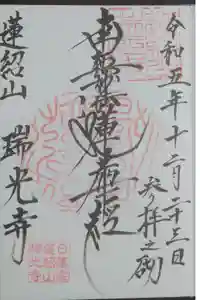 令和五年十二月二十三日
参拝之砌
南無妙法蓮華経
蓮紹山 瑞光寺